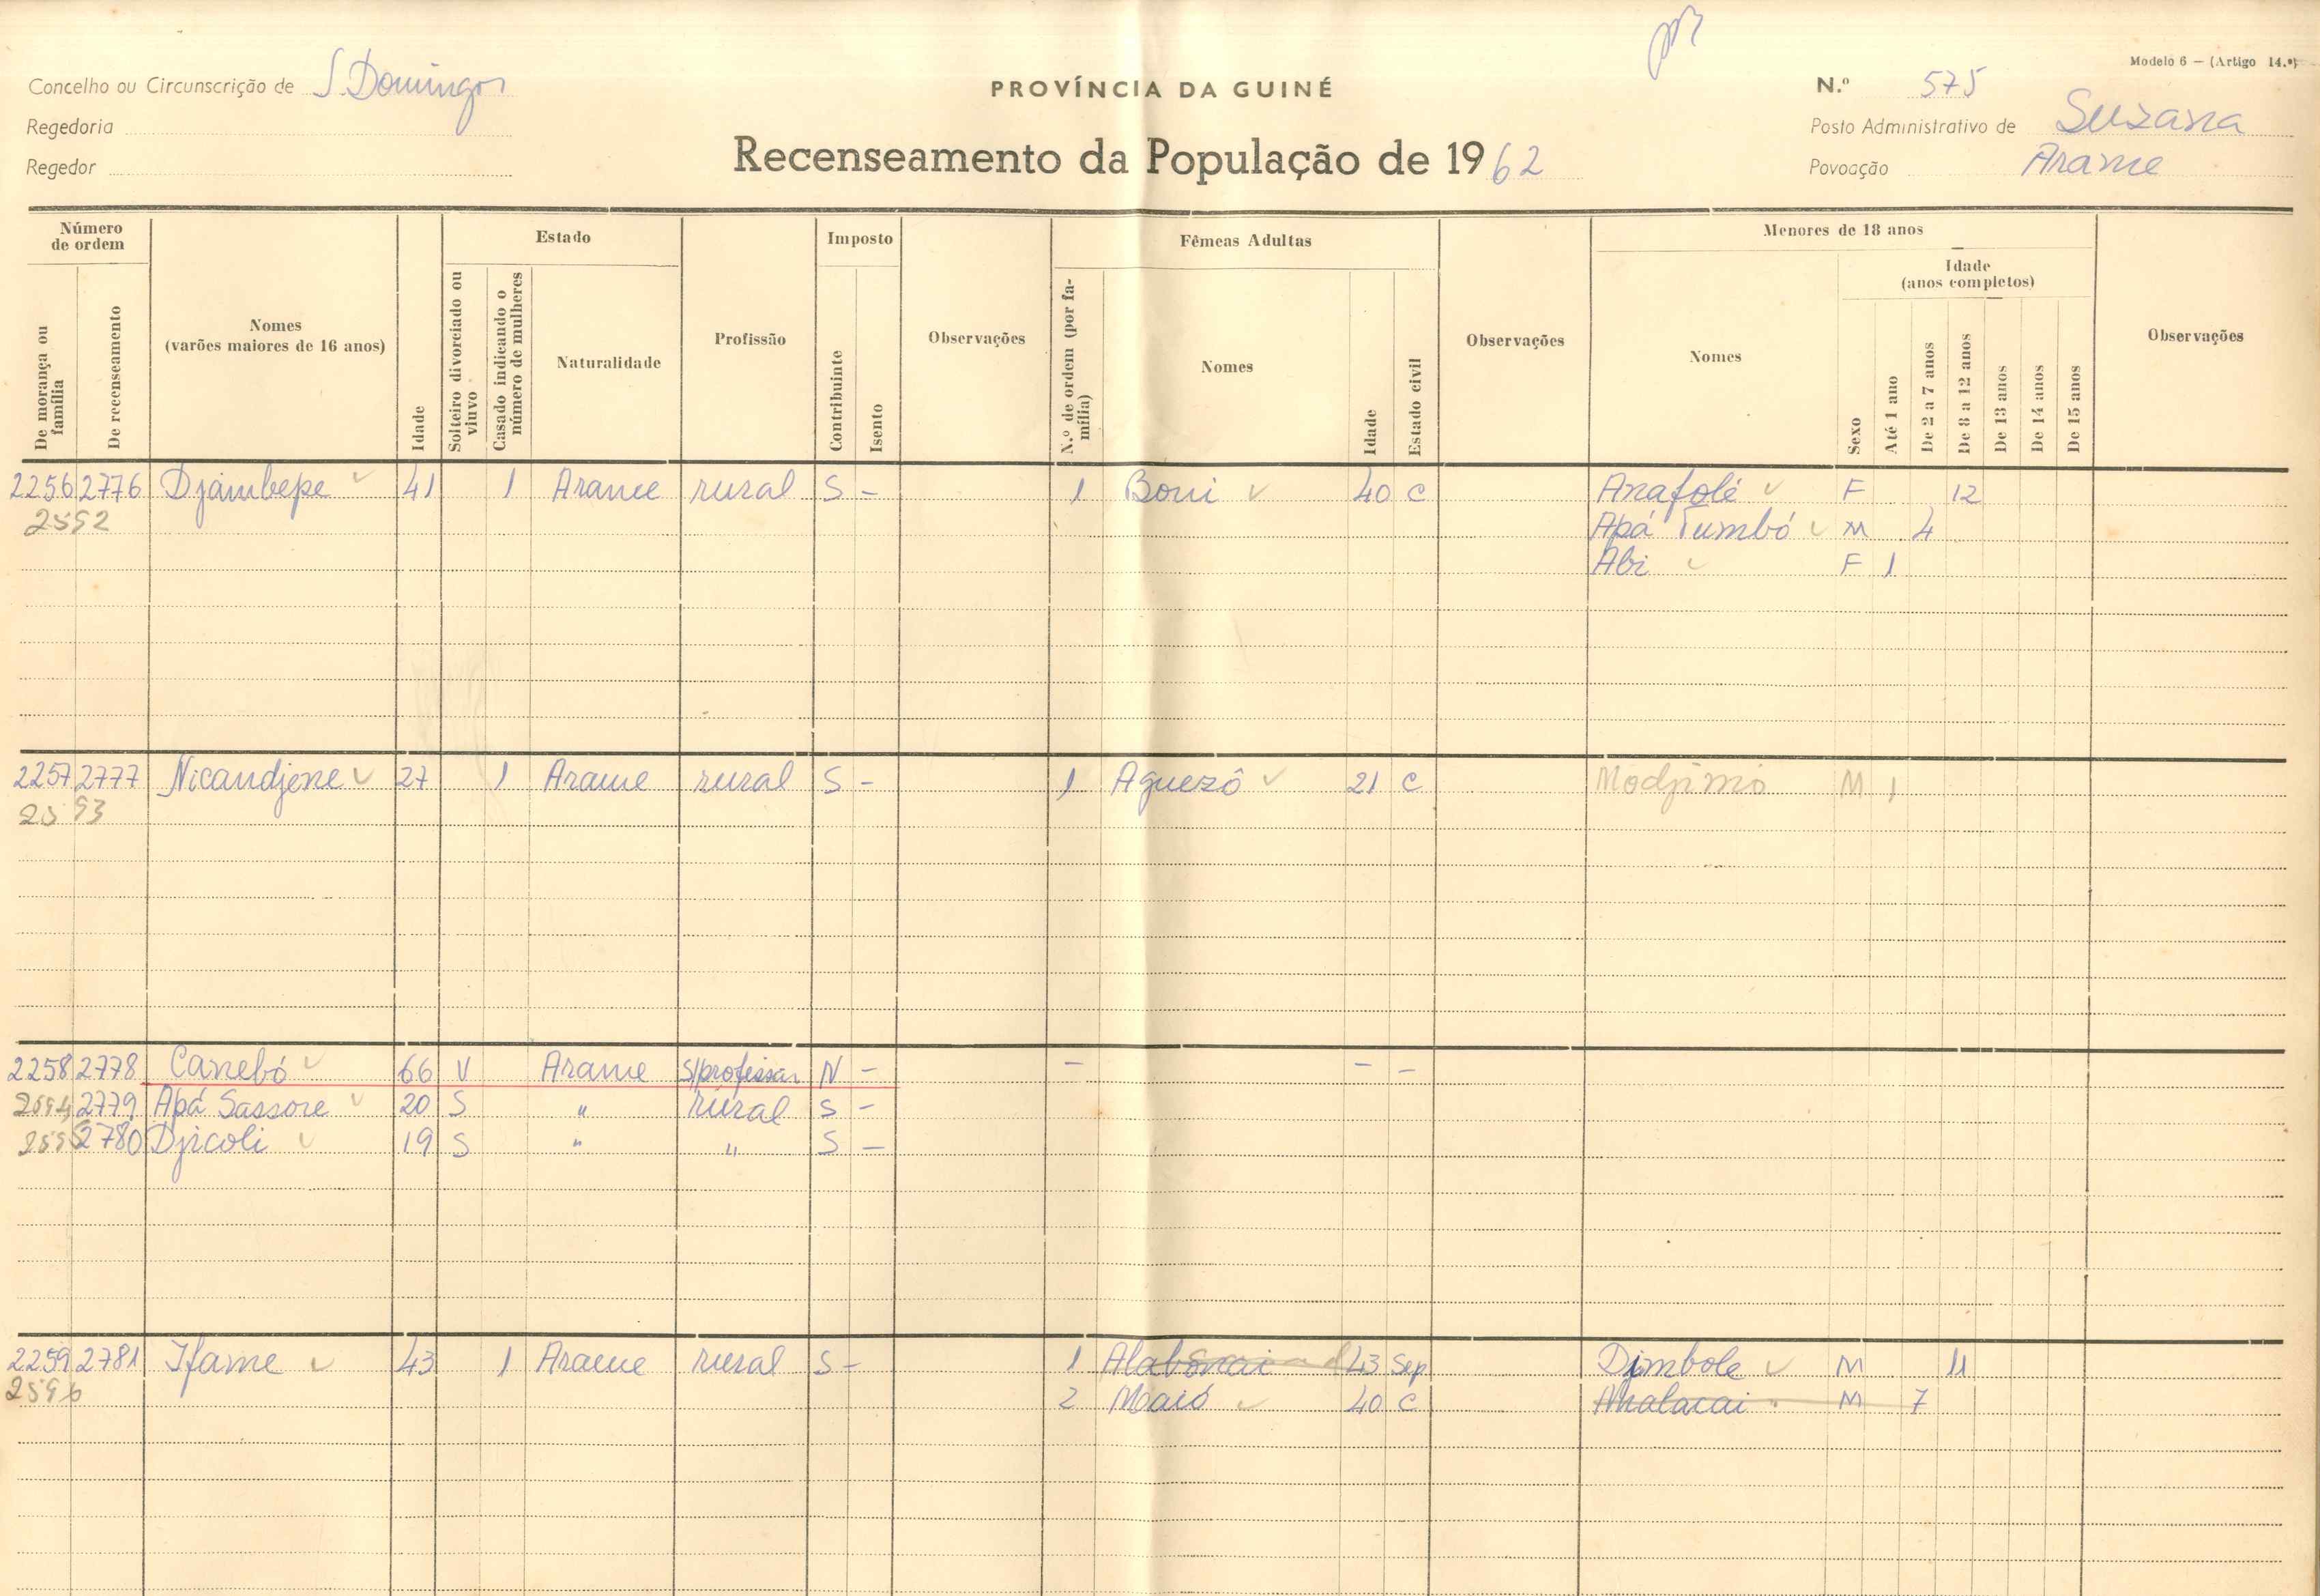 Modelo 6 — (Artigo 14.º)
Concelho ou Circunscrição de S. Domingos
PROVÍNCIA DA GUINÉ
N.º 575
Regedoria
Posto Administrativo de Suzana
Regedor
Recenseamento da População de 1962
Povoação Arame
Número de ordem
Estado
Imposto
Fêmeas Adultas
Menores de 18 anos
Idade (anos completos)
De morança ou família
De recenseamento
Nomes (varões maiores de 16 anos)
Idade
Solteiro divorciado ou viuvo
Casado indicando o número de mulheres
Naturalidade
Profissão
Contribuinte
Isento
Observações
N.º de ordem (por família)
Nomes
Idade
Estado civil
Observações
Nomes
Sexo
Até 1 ano
De 2 a 7 anos
De 8 a 12 anos
De 13 anos
De 14 anos
De 15 anos
Observações
2256 2776 Djambepe 41 1 Arame rural S - 1 Boni 40 C Anafolé F 12
2592 Apá Tumbó M 4
Abi F 1
2257 2777 Nicandjene 27 1 Arame rural S - 1 Aguezô 21 C Modjimo M 1
2593
2258 2778 Canebó 66 V Arame S/profissão N - - - -
2594 2779 Apá Sassore 20 S " rural S -
2595 2780 Djicoli 19 S " " S -
2259 2781 Ifame 43 1 Arame rural S - 1 Alabonai 43 Sep Djmbole M 11
2596 2 Maió 40 C Nhalacai M 7